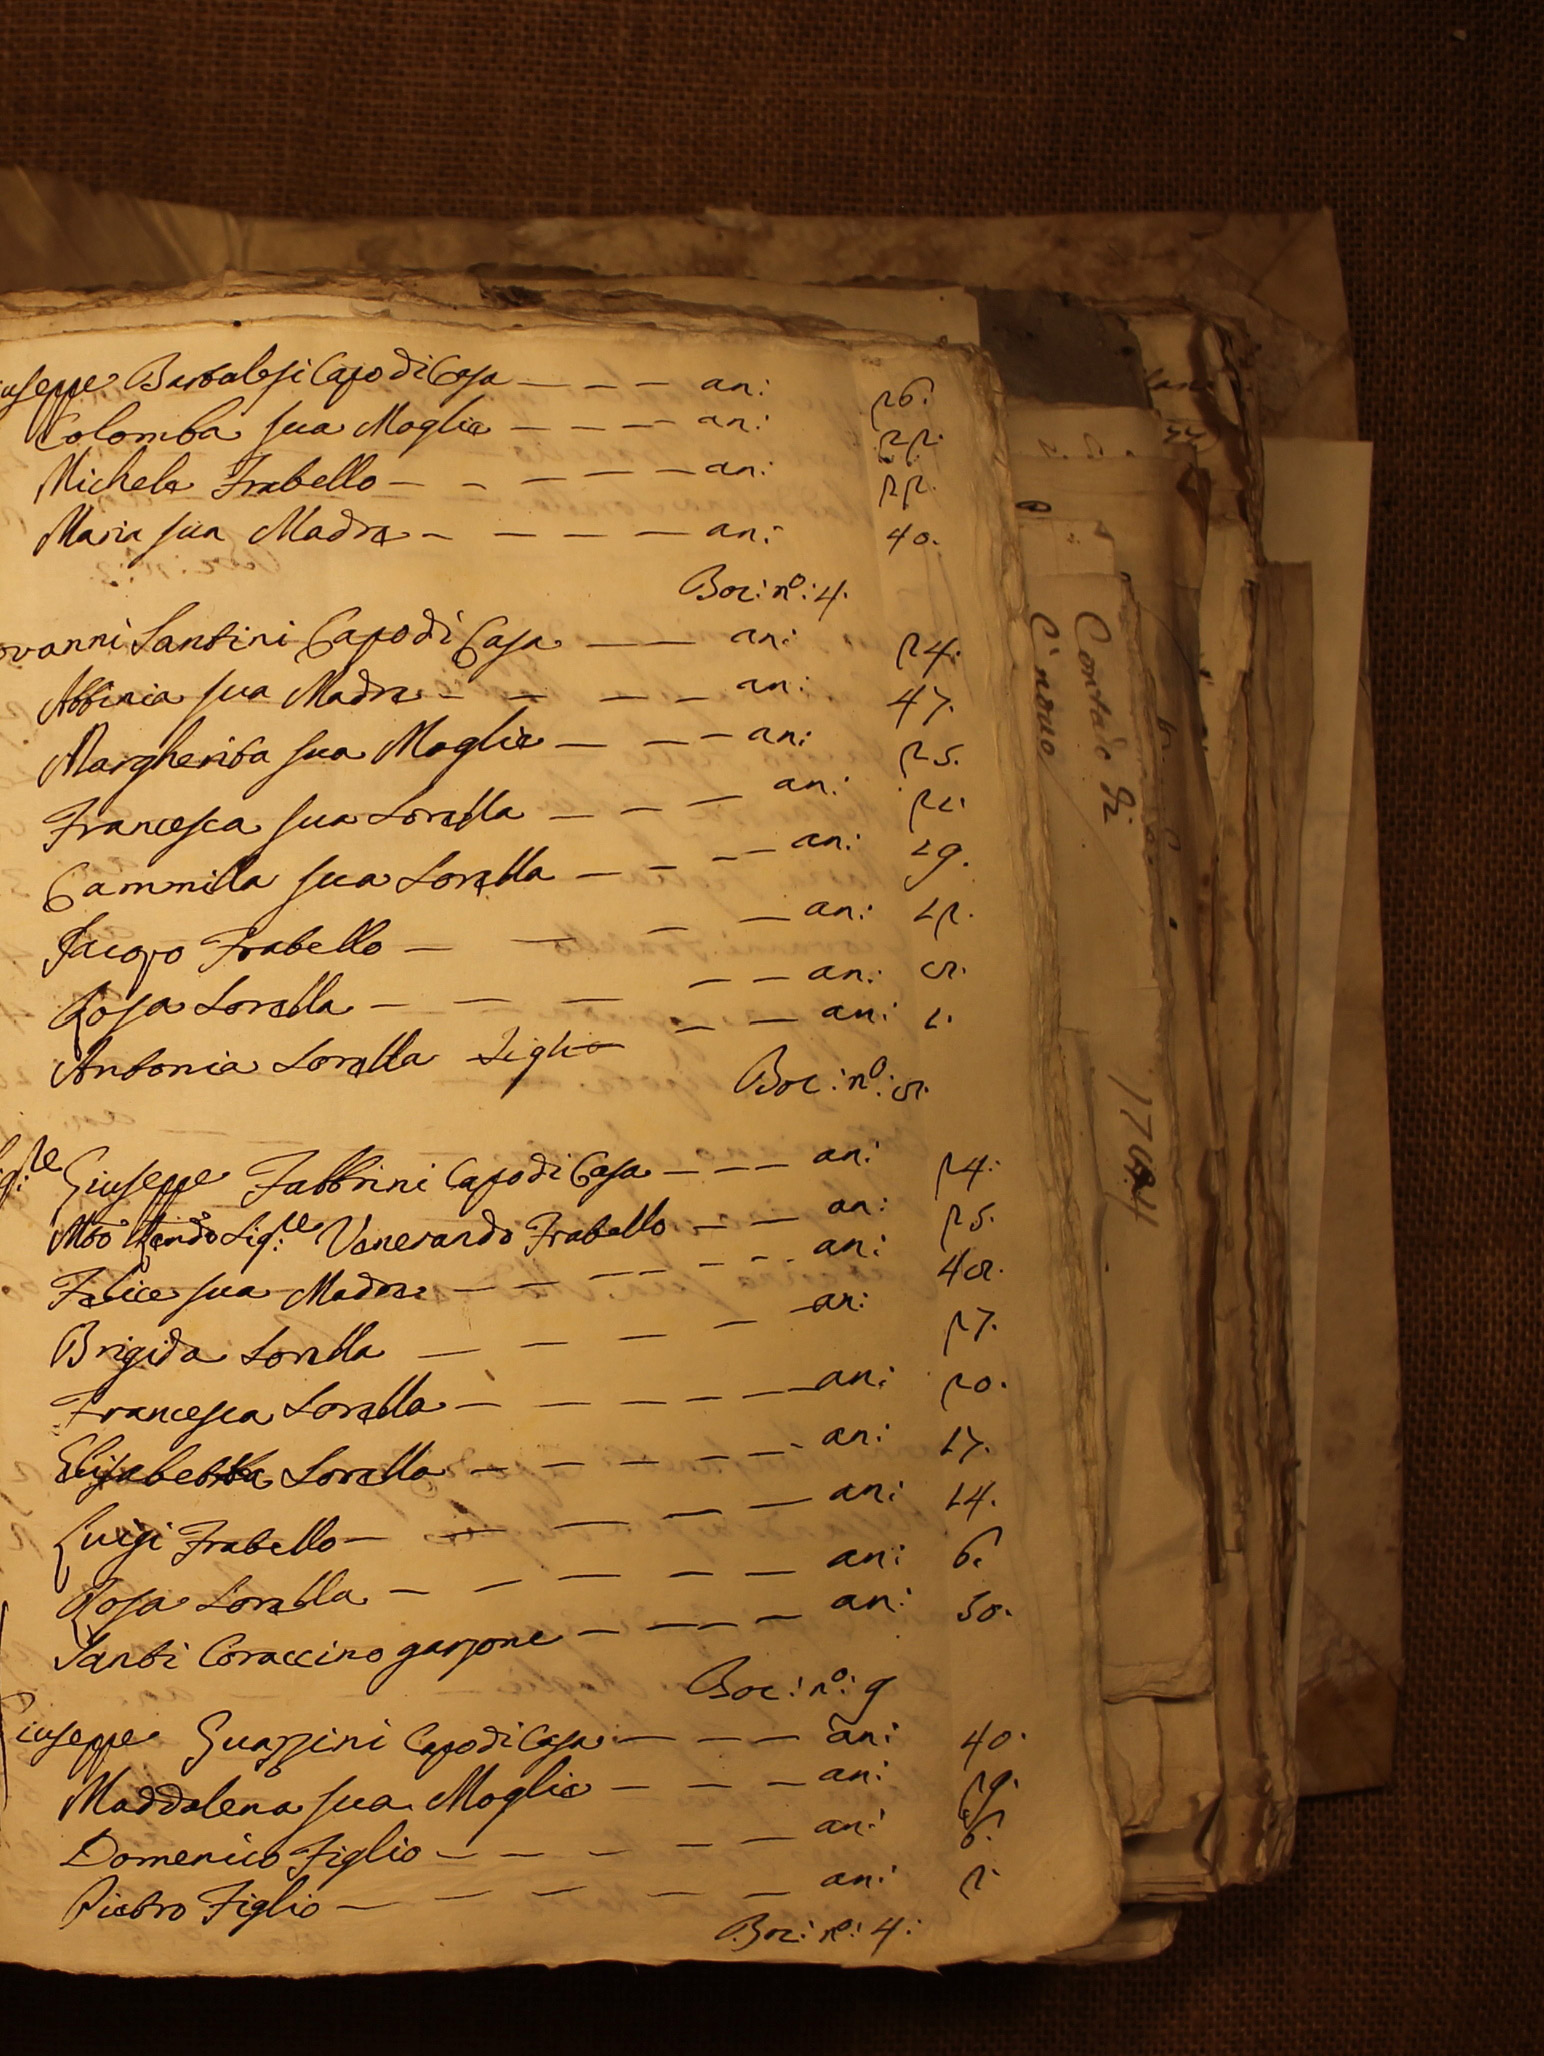 iuseppe Barbalesi Capo di Casa — — — an: 26.
Colomba sua Moglie — — — — an: 22.
Michele Fratello — — — — — an: 22.
Maria sua Madre — — — — — an: 40.
Boc: nº: 4.
ovanni Santini Capo di Casa — — an: 24.
Abbinia sua Madre — — — — an: 47.
Margherita sua Moglie — — — an: 25.
Francesca sua Sorella — — — an: 21.
Cammilla sua Sorella — — — — an: 19.
Jacopo Fratello — — — — an: 12.
Rosa Sorella — — — — — an: 8.
Antonia Sorella Figlia — — an: 1.
Boc: nº: 8.
Sig:re Giuseppe Fabbrini Capo di Casa — — — an: 24.
Mto Rendo Sig:re Venerando Fratello — — an: 25.
Felice sua Madre — — — — — — an: 48.
Brigida Sorella — — — — — an: 27.
Francesca Sorella — — — — — — an: 20.
Elisabetta Sorella — — — — — — an: 17.
Luigi Fratello — — — — — an: 14.
Rosa Sorella — — — — — — an: 6.
Santi Coraccino garzone — — — — an: 50.
Boc: nº: 9
Giuseppe Guazzini Capo di Casa — — — an: 40.
Maddalena sua Moglie — — — an: 29.
Domenico Figlio — — — — — an: 6.
Pietro Figlio — — — — — — an: 2.
Boc: nº: 4.
Contado di